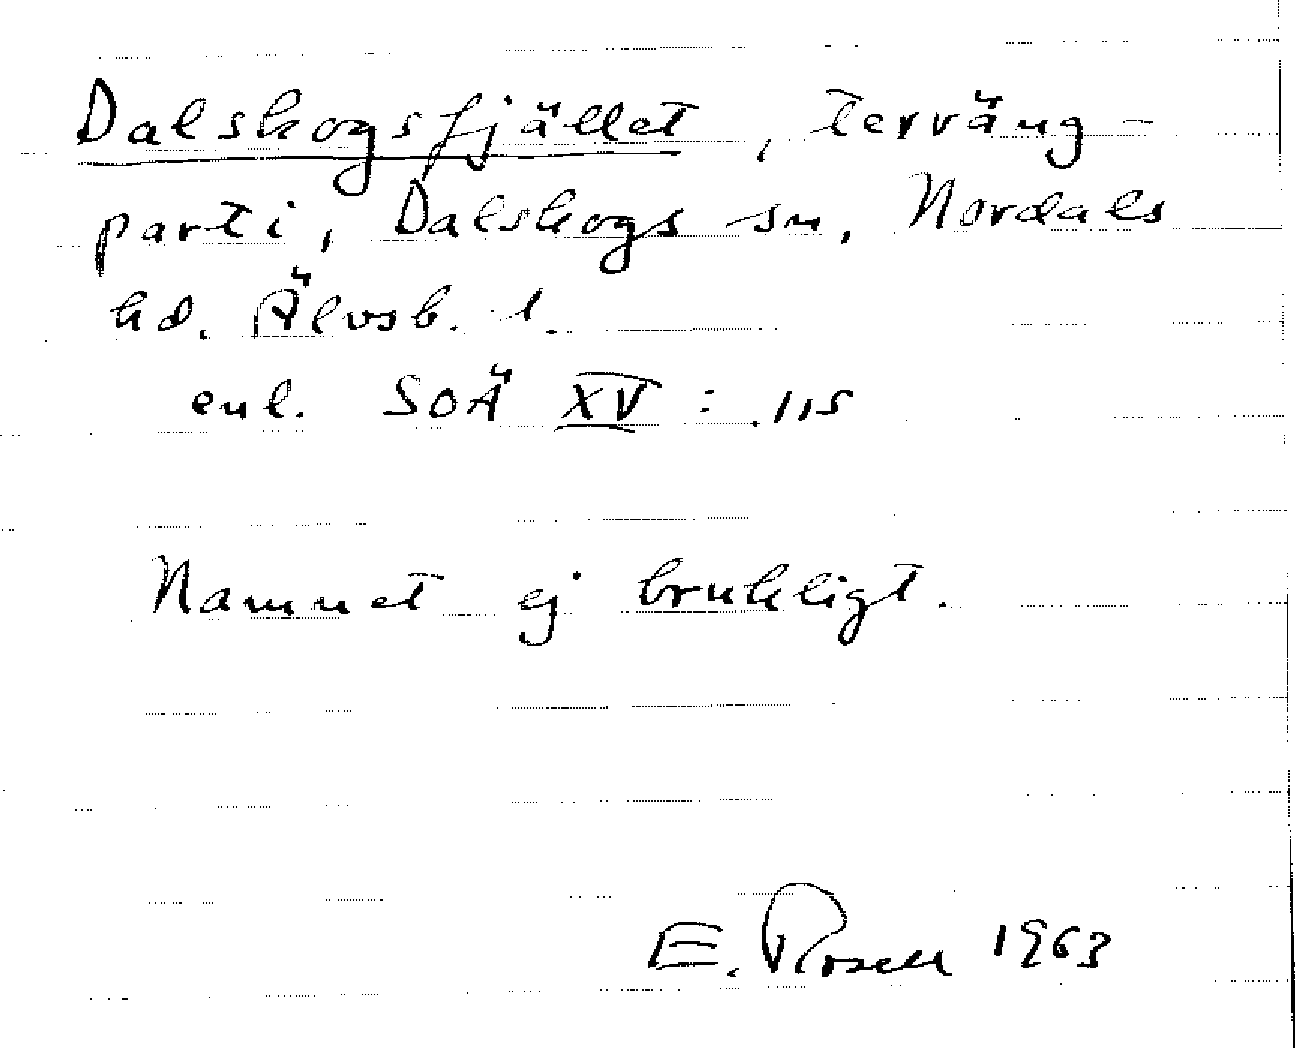 Dalskogsfjället, terräng-
parti, Dalskogs sn, Nordals
hd. Älvsb. l.
enl. SOÄ XV : 115
Namnet ej brukligt.
E. Rosell 1963